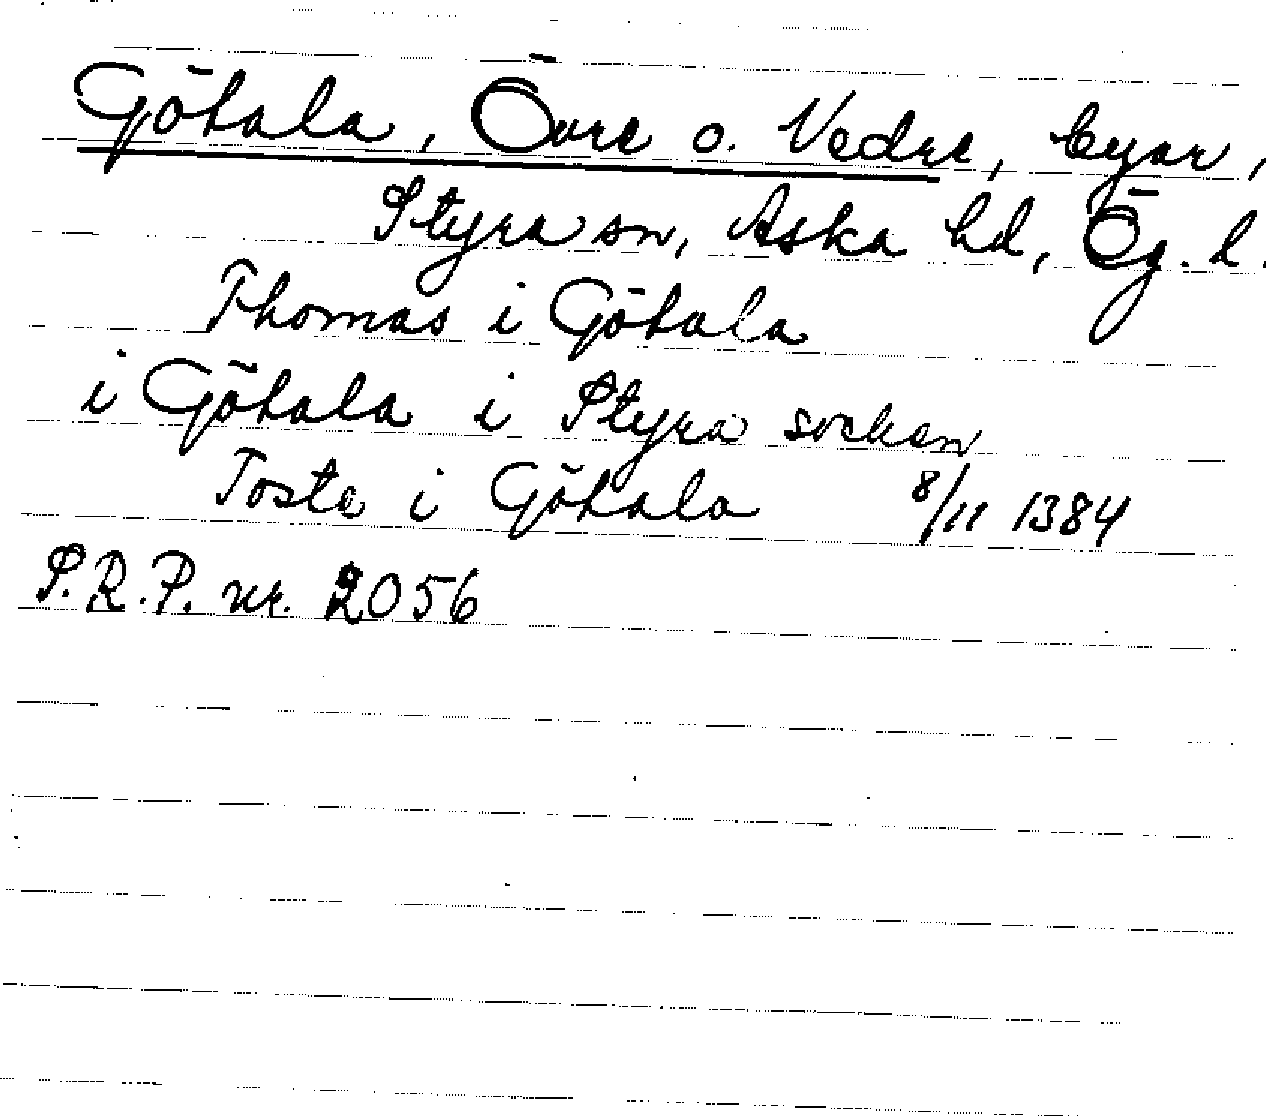 Götala, Övre o. Nedre, byar,
Styra sn, Aska hd, Ög. l.
Thomas i Götala
i Götala i Styra socken
Toste i Götala 8/11 1384
S.R.P. nr. 2056